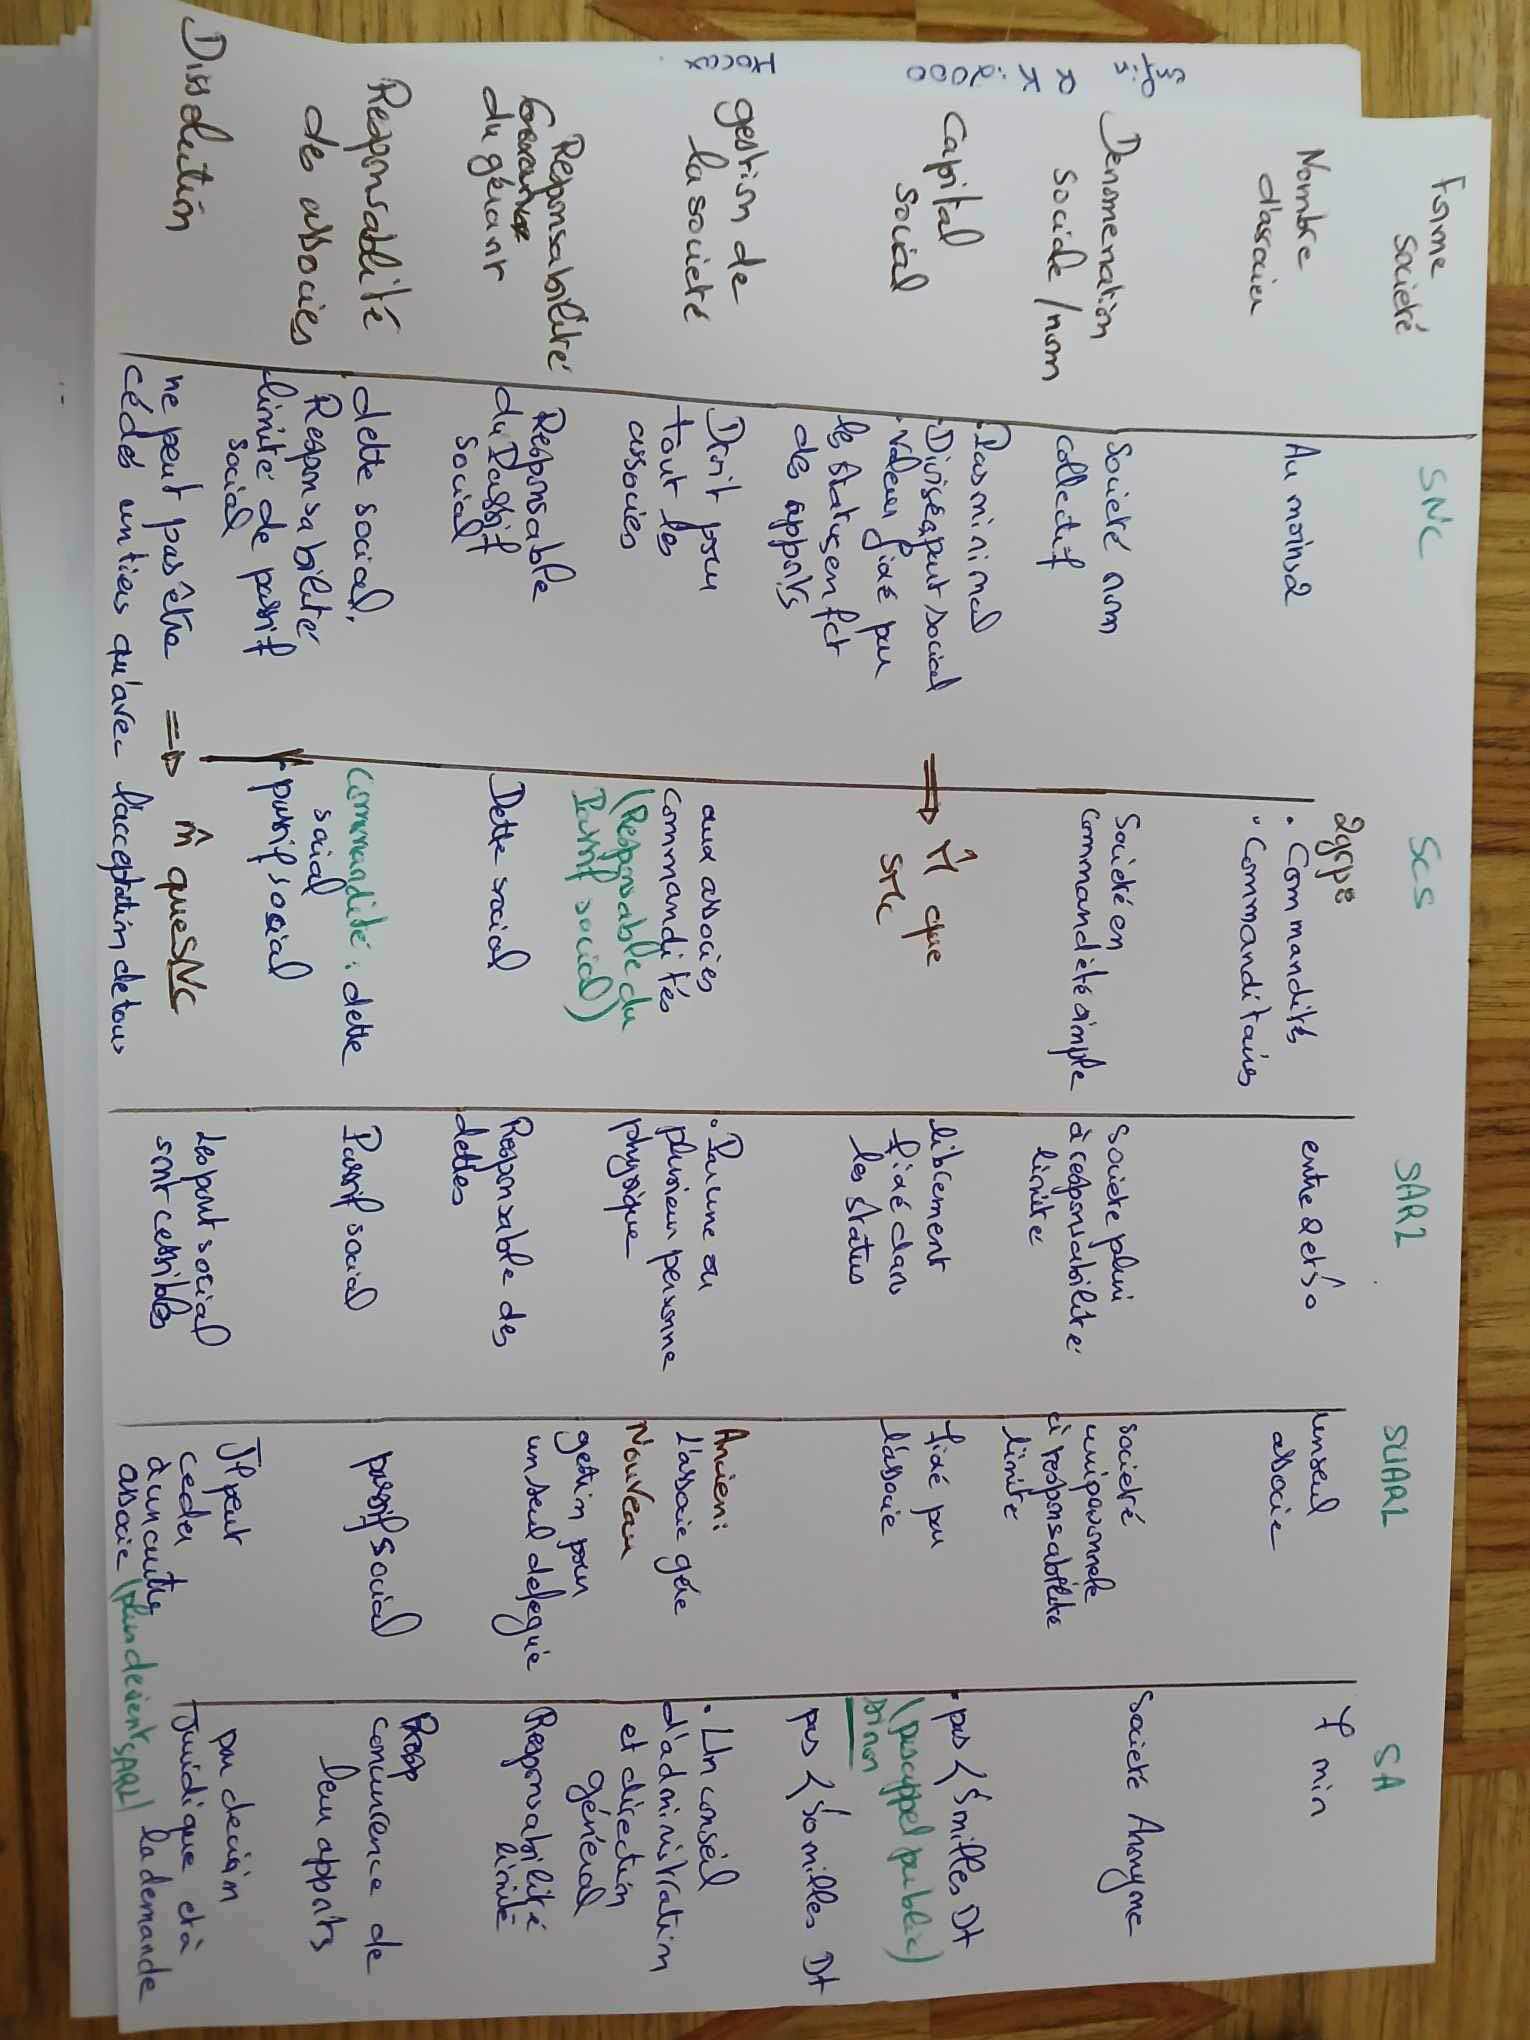 Forme
Societé
SNC
SCS
SARL
SUARL
SA
Nombre
d'associer
Au moins 2
2grps
. Commandités
. Commanditaires
entre 2 et 50
un seul
associe
7 min
Denomenation
sociale / nom
Societé nom
collectif
Societé en
commandèté simple
Societe pluri
à responsabilite
limite
societé
uniperonnele
à responsabélite
limite
Societé Anonyme
Capital
social
. Pas minimal
. Divisé à part social
. valeur fixé par
les status en fct
des apports
=> M̂ que
SNC
librement
fixé dans
les status
fixé par
l'associe
. pas < 5 milles Dt
(pas appel public)
sinon
pas < 50 milles Dt
gestion de
la societé
Droit pour
tout les
associes
aux associes
commandités
(Responsable du
Passif social)
. Par une ou
plusieur personne
physique
Ancien:
L'associe gére
Nouveau
gestion pour
un seul delegué
. Un conseil
d'administration
et direction
général
Responsabilité
du gérant
Responsable
du Passif
social
Dette social
Responsable des
dettes
Responsabilité
limité
Responsablité
des associes
dette social.
Responsabilité
limité de passif
social
commandité : dette
social
passif social
Passif social
passif social
Resp
concurence de
leur apports
Dissolution
ne peut pas être
cédés un tiers qu'avec l'acceptation de tous
=> m̂ que SNC
Les part social
sont cessibles
Il peut
ceder
à un autre
associe (plus devient SARL)
par decision
Juridique et à
la demande
enfin R K :2000
Hocax .